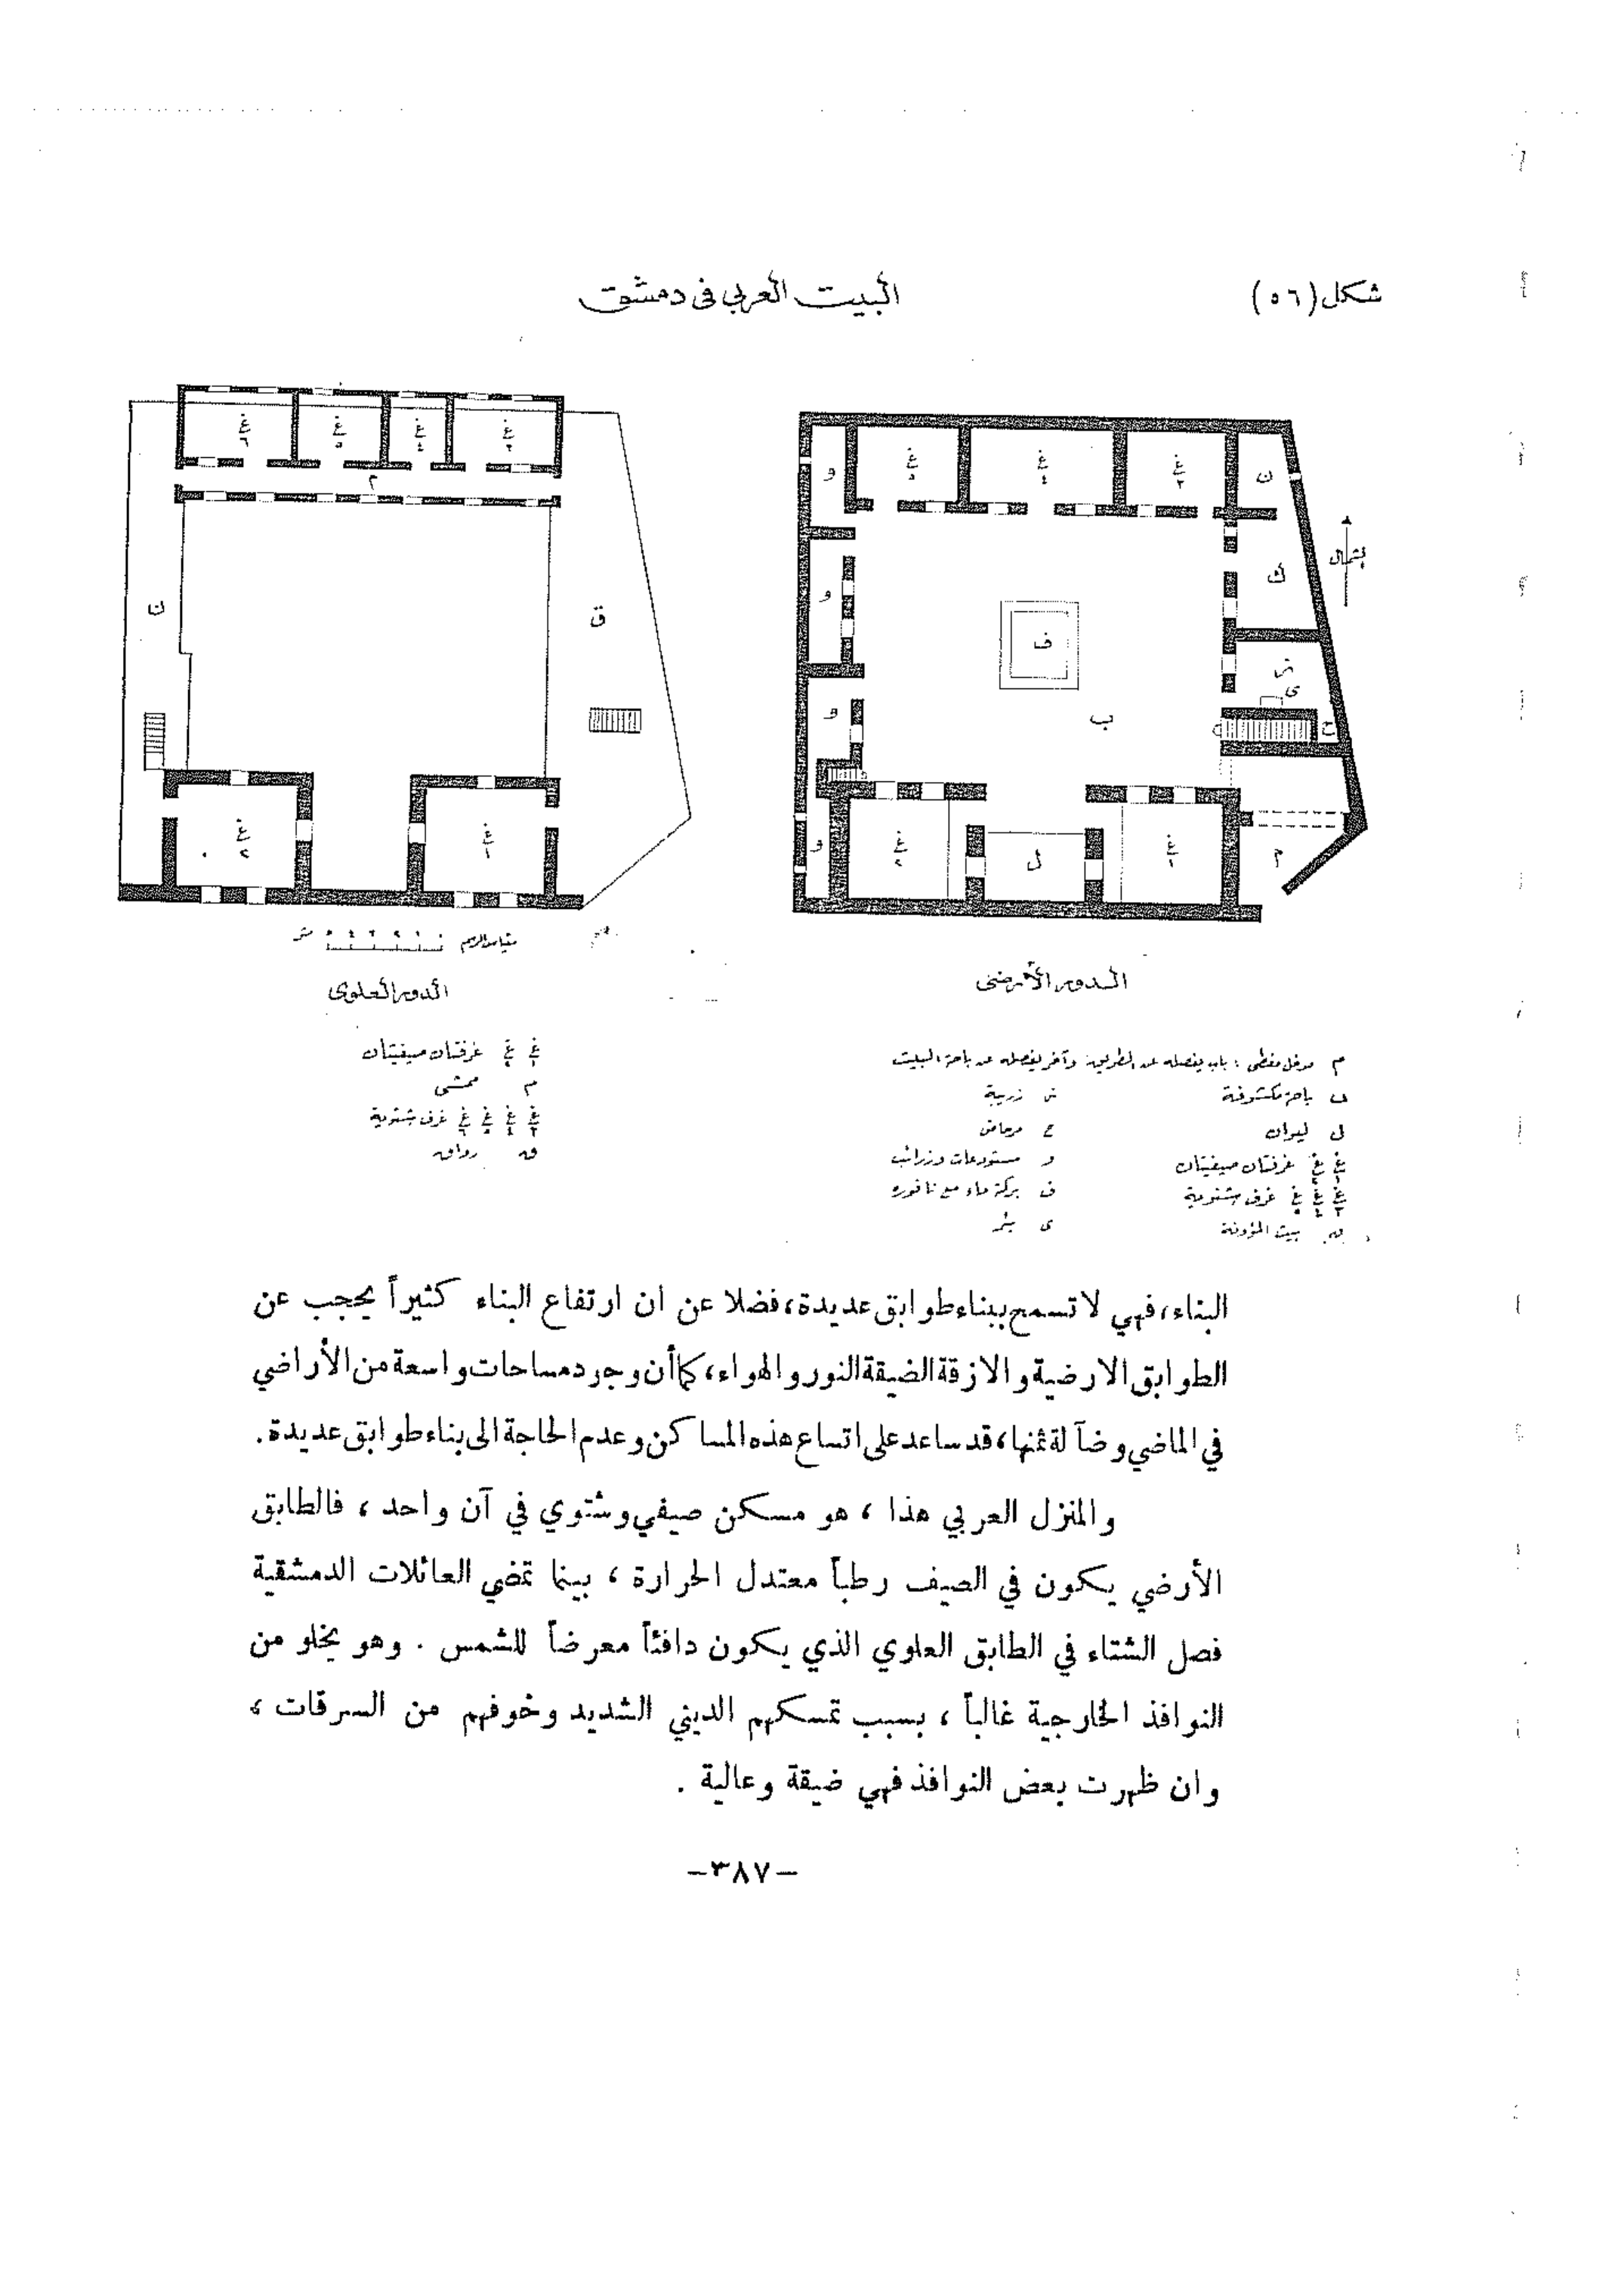 شكل (٥٦)
البيت العربي في دمشق
غ ٦
غ ٥
غ ٤
غ ٣
م
ق
غ ٢
غ ١
و
غ ٥
غ ٤
غ ٣
ن
الشمال
ك
و
ف
ش
ى
و
ب
ح
و
غ ٢
ل
غ ١
م
مقياس الرسم ٠ ١ ٢ ٣ ٤ ٥ متر
الدور الأرضي
الدور العلوي
م مدخل مغطى : باب يفصله عن الطريق وآخر يفصله عن باحة البيت
ب باحة مكشوفة
ل ليوان
غ ١ غ ٢ غرفتان صيفيتان
غ ٣ غ ٤ غ ٥ غرف شتوية
بيت المؤونة
ش زريبة
ح مرحاض
و مستودعات وزرائب
ف بركة ماء مع نافورة
ى بئر
غ ١ غ ٢ غرفتان صيفيتان
م ممشى
غ ٣ غ ٤ غ ٥ غ ٦ غرف شتوية
ق رواق
البناء، فهي لا تسمح ببناء طوابق عديدة، فضلا عن ان ارتفاع البناء كثيراً يحجب عن
الطوابق الارضية والازقة الضيقة النور والهواء، كما أن وجود مساحات واسعة من الأراضي
في الماضي وضآلة ثمنها، قد ساعد على اتساع هذه المساكن وعدم الحاجة الى بناء طوابق عديدة.
والمنزل العربي هذا ، هو مسكن صيفي وشتوي في آن واحد ، فالطابق
الأرضي يكون في الصيف رطباً معتدل الحرارة ، بينما تمضي العائلات الدمشقية
فصل الشتاء في الطابق العلوي الذي يكون دافئاً معرضاً للشمس . وهو يخلو من
النوافذ الخارجية غالباً ، بسبب تمسكهم الديني الشديد وخوفهم من السرقات ،
وان ظهرت بعض النوافذ فهي ضيقة وعالية .
-٣٨٧-